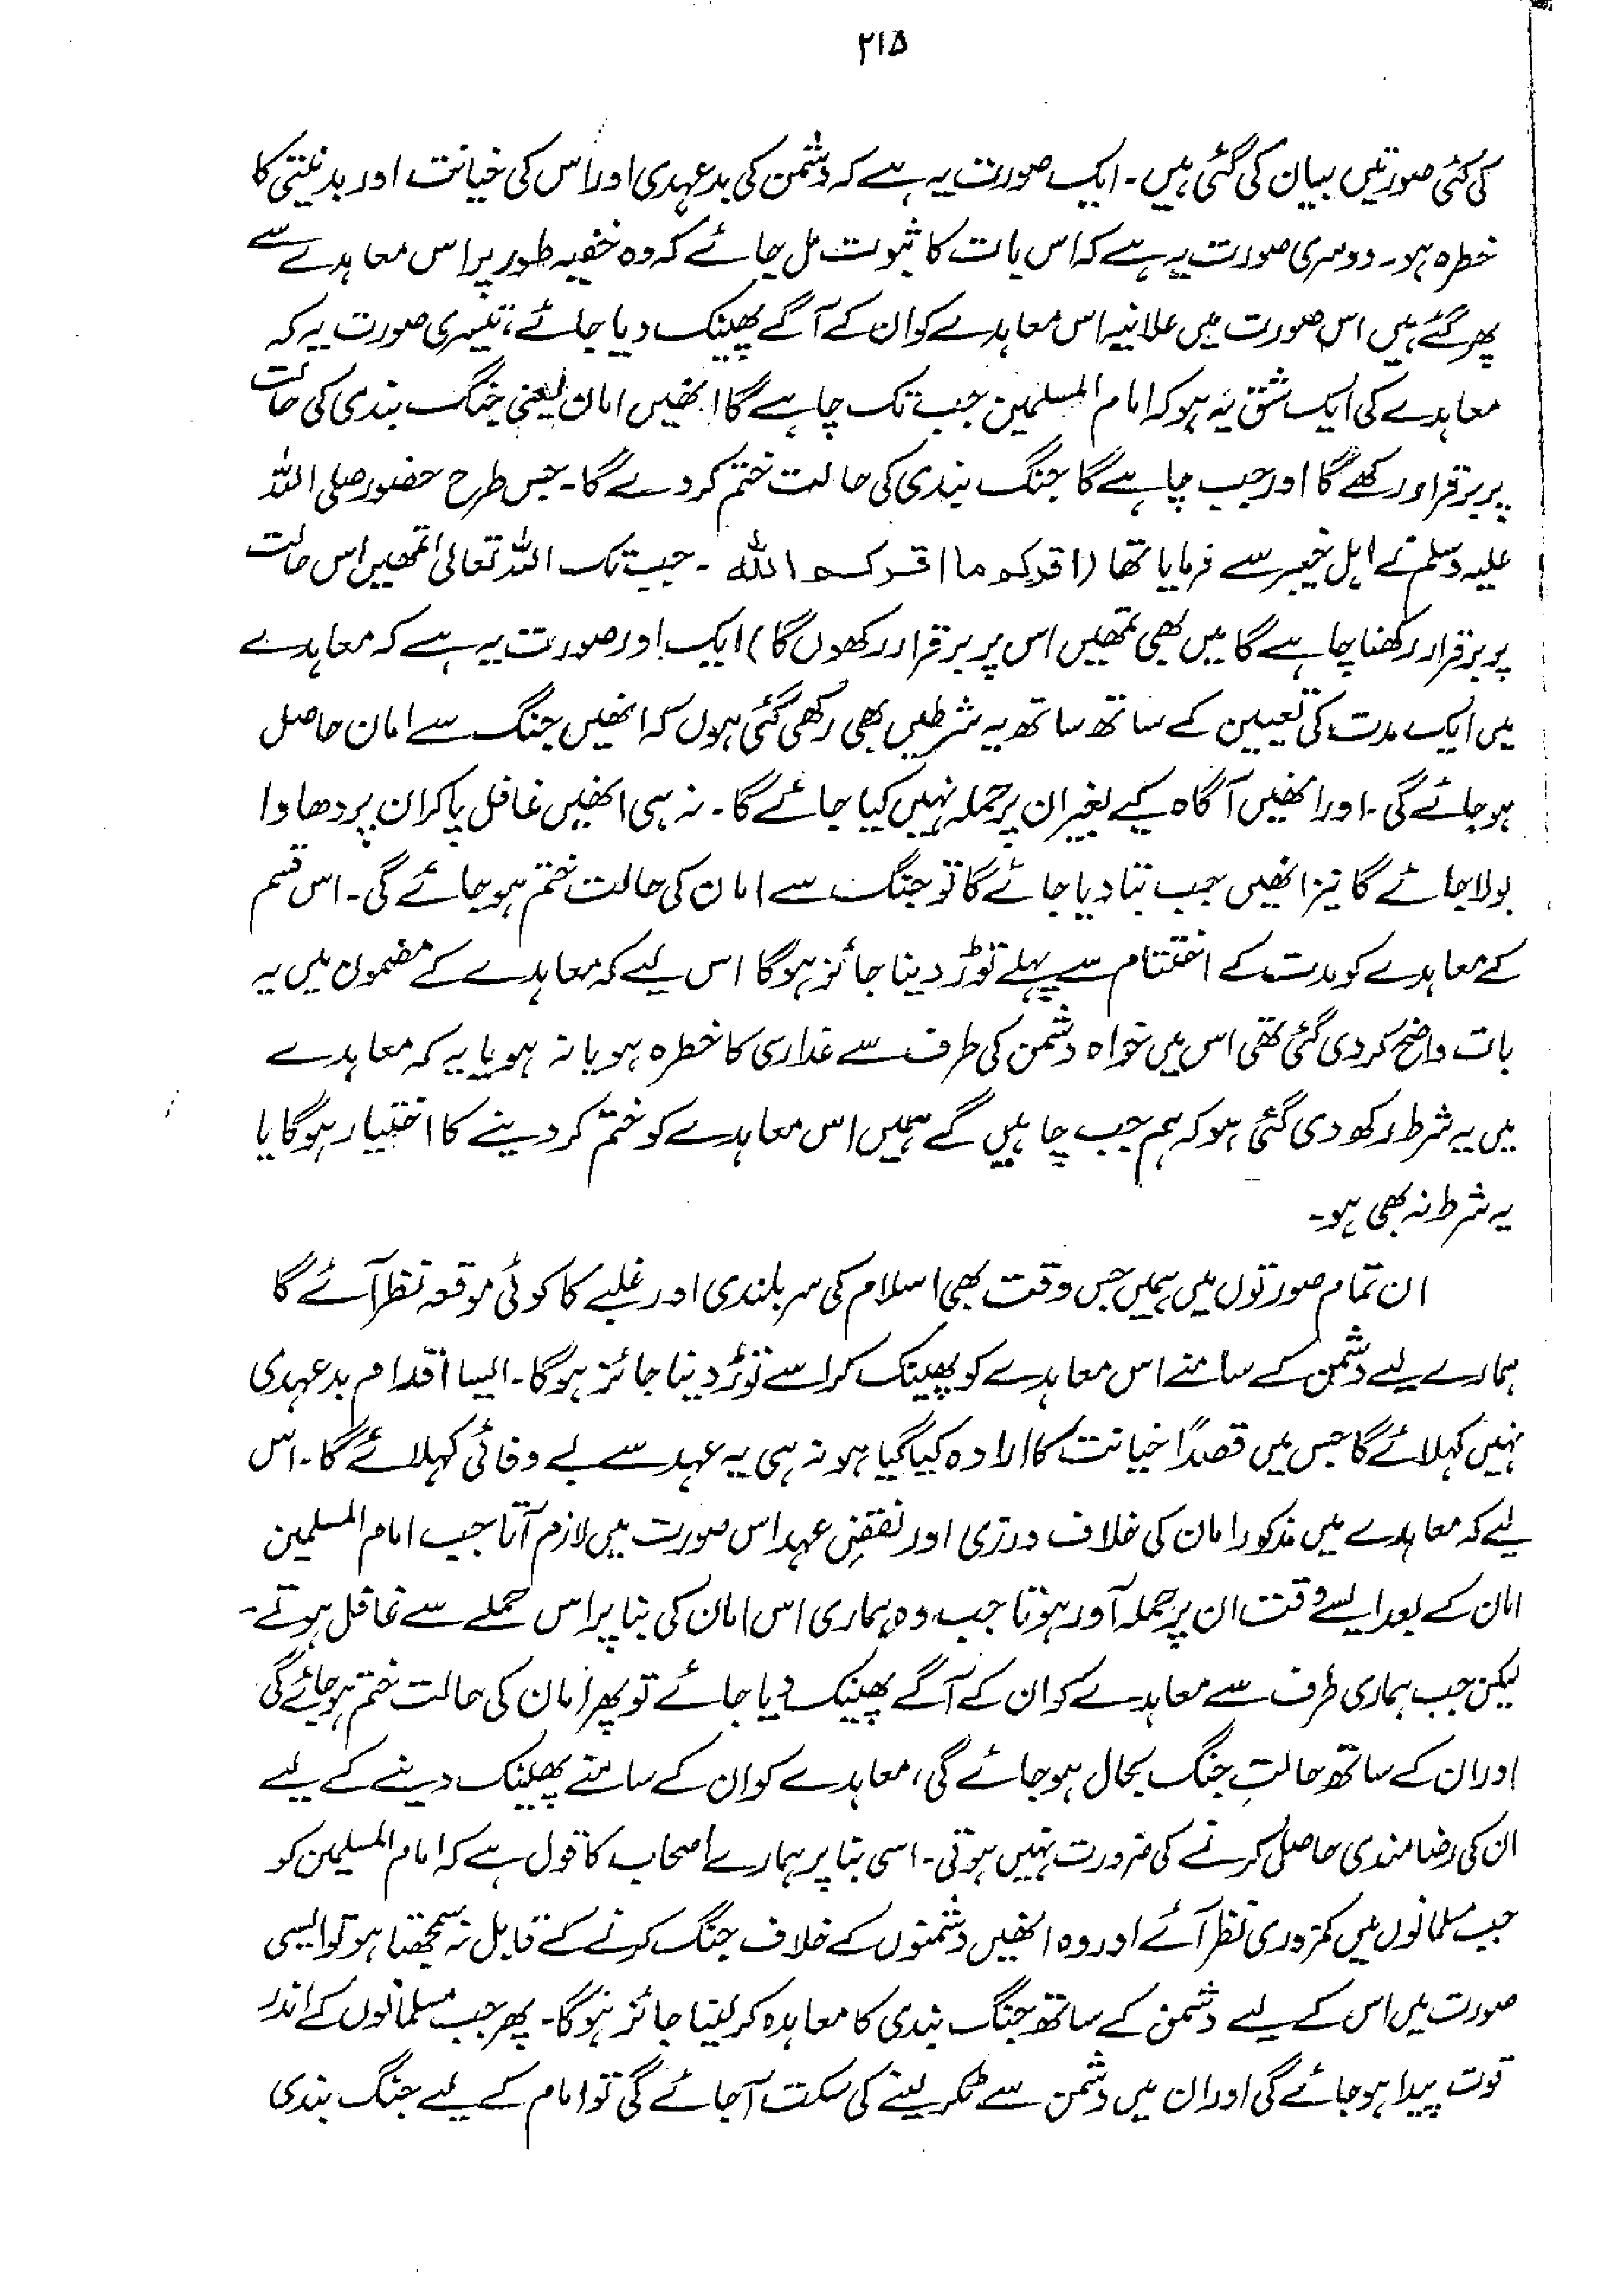 ۲۱۵
کی کئی صورتیں بیان کی گئی ہیں۔ ایک صورت یہ ہے کہ دشمن کی بدعہدی اور اس کی خیانت اور بدنیتی کا
خطرہ ہو۔ دوسری صورت یہ ہے کہ اس بات کا ثبوت مل جائے کہ وہ خفیہ طور پر اس معاہدے سے
پھر گئے ہیں اس صورت میں علانیہ اس معاہدے کو ان کے آگے پھینک دیا جائے، تیسری صورت یہ کہ
معاہدے کی ایک شق یہ ہو کہ امام المسلمین جب تک چاہے گا انھیں امان یعنی جنگ بندی کی حالت
پر برقرار رکھے گا اور جب چاہے گا جنگ بندی کی حالت ختم کر دے گا۔ جس طرح حضور صلی اللہ
علیہ وسلم نے اہل خیبر سے فرمایا تھا (اقرکو ما اقرکو اللہ ۔ جب تک اللہ تعالیٰ تمھیں اس حالت
پر برقرار رکھنا چاہے گا میں بھی تمھیں اس پر برقرار رکھوں گا) ایک اور صورت یہ ہے کہ معاہدے
میں ایک مدت کی تعیین کے ساتھ ساتھ یہ شرطیں بھی رکھی گئی ہوں کہ انھیں جنگ سے امان حاصل
ہو جائے گی۔ اور انھیں آگاہ کیے بغیر ان پر حملہ نہیں کیا جائے گا۔ نہ ہی انھیں غافل پا کر ان پر دھاوا
بولا جائے گا نیز انھیں جب بتا دیا جائے گا تو جنگ سے امان کی حالت ختم ہو جائے گی۔ اس قسم
کے معاہدے کو مدت کے اختتام سے پہلے توڑ دینا جائز ہوگا اس لیے کہ معاہدے کے مضمون میں یہ
بات واضح کر دی گئی تھی اس میں خواہ دشمن کی طرف سے غداری کا خطرہ ہو یا نہ ہو یا یہ کہ معاہدے
میں یہ شرط رکھ دی گئی ہو کہ ہم جب چاہیں گے ہمیں اس معاہدے کو ختم کر دینے کا اختیار ہوگا یا
یہ شرط نہ بھی ہو۔
ان تمام صورتوں میں ہمیں جس وقت بھی اسلام کی سربلندی اور غلبے کا کوئی موقعہ نظر آئے گا
ہمارے لیے دشمن کے سامنے اس معاہدے کو پھینک کر اسے توڑ دینا جائز ہوگا۔ ایسا اقدام بدعہدی
نہیں کہلائے گا جس میں قصداً خیانت کا ارادہ کیا گیا ہو نہ ہی یہ عہد سے بے وفائی کہلائے گا۔ اس
لیے کہ معاہدے میں مذکور امان کی خلاف ورزی اور نقضِ عہد اس صورت میں لازم آتا جب امام المسلمین
امان کے بعد ایسے وقت ان پر حملہ آور ہوتا جب وہ ہماری اس امان کی بنا پر اس حملے سے غافل ہوتے۔
لیکن جب ہماری طرف سے معاہدے کو ان کے آگے پھینک دیا جائے تو پھر امان کی حالت ختم ہو جائے گی
اور ان کے ساتھ حالتِ جنگ بحال ہو جائے گی، معاہدے کو ان کے سامنے پھینک دینے کے لیے
ان کی رضامندی حاصل کرنے کی ضرورت نہیں ہوتی۔ اسی بنا پر ہمارے اصحاب کا قول ہے کہ امام المسلیمن کو
جب مسلمانوں میں کمزوری نظر آئے اور وہ انھیں دشمنوں کے خلاف جنگ کرنے کے قابل نہ سمجھتا ہو تو ایسی
صورت میں اس کے لیے دشمن کے ساتھ جنگ بندی کا معاہدہ کر لینا جائز ہوگا۔ پھر جب مسلمانوں کے اندر
قوت پیدا ہو جائے گی اور ان میں دشمن سے ٹکر لینے کی سکت آجائے گی تو امام کے لیے جنگ بندی